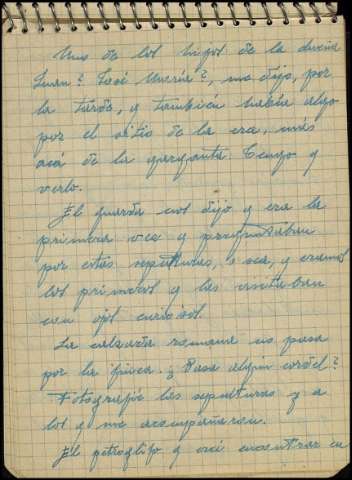 Uno de los hijos de la dueña
Juan? José María?, me dijo, por
la tarde, y también había algo
por el sitio de la era, más
acá de la garganta. Tengo q
verlo.
El guarda nos dijo q era la
primera vez q preguntaban
por estas sepulturas, o sea, q eramos
los primeros q las
con ojos curiosos.
La calzada romana no pasa
por la finca. ¿Pasa algún cordel?
Fotografié las sepulturas y a
los q me acompañaron.
El petroglifo q creí encontrar en